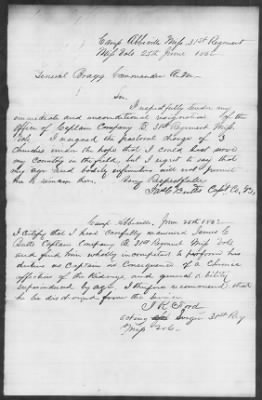 Camp Abbeville Miss. 31st Regiment
Miss Vols. 25th June 1862
General Bragg Commander
Sir,
I respectfully tender my
immediate and unconditional resignation of the
office of Captain Company E, 31st Regiment Miss.
Vols. I resigned the pastoral charge of 3
Churches under the hope that I could best serve
my Country in the field, but I regret to say that
my age and bodily infirmities will not permit
me to remain here. Very Respectfully
Capt Co.
Camp Abbeville, June 25th 1862
I certify that I have carefully examined James E
Butts Captain Company 31st Regiment Miss Vols
and find him wholly incompetent to perform his
duties as Captain in consequence of a Chronic
affection of the Kidneys and general debility
superinduced by age, I therefore recommend that
he be discharged from the service
J. R. Ford
acting Surgn 31st Reg
Miss Vols.